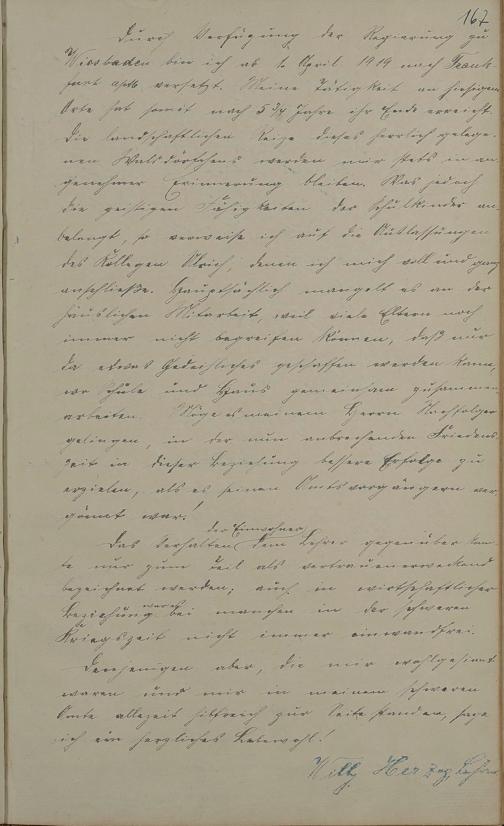 167
Durch Verfügung der Regierung zu
Wiesbaden bin ich ab 1. April 1919 nach Frank-
furt a/M. versetzt. Meine Tätigkeit am hiesigen
Orte hat somit nach 5 3/4 Jahre ihr Ende erreicht.
Die landschaftlichen Reize dieses herrlich gelege-
nen Walddörfchens werden mir stets in an-
genehmer Erinnerung bleiben. Was jedoch
die geistigen Fähigkeiten der Schulkinder an-
belangt, so verweise ich auf die Auslassungen
des Kollegen Ulrich, denen ich mich voll und ganz
anschließe. Hauptsächlich mangelt es an der
häuslichen Mitarbeit, weil viele Eltern noch
immer nicht begreifen können, daß nur
da etwas Gedeihliches geschaffen werden kann,
wo Schule und Haus gemeinsam zusammen
arbeiten. Möge es meinem Herrn Nachfolger
gelingen, in der nun anbrechenden Friedens-
zeit in dieser Beziehung bessere Erfolge zu
erzielen, als es seinen Amtsvorgängern ver-
gönnt war!
Das Verhalten der Einwohner dem Lehrer gegenüber konn-
te nur zum Teil als vertrauenerweckend
bezeichnet werden; auch in wirtschaftlicher
Beziehung war es bei manchen in der schweren
Kriegszeit nicht immer einwandfrei.
Denjenigen aber, die mir wohlgesinnt
waren und mir in meinem schweren
Amte allezeit hilfreich zur Seite standen, sage
ich ein herzliches Lebewohl!
Willy Herzog, Lehrer